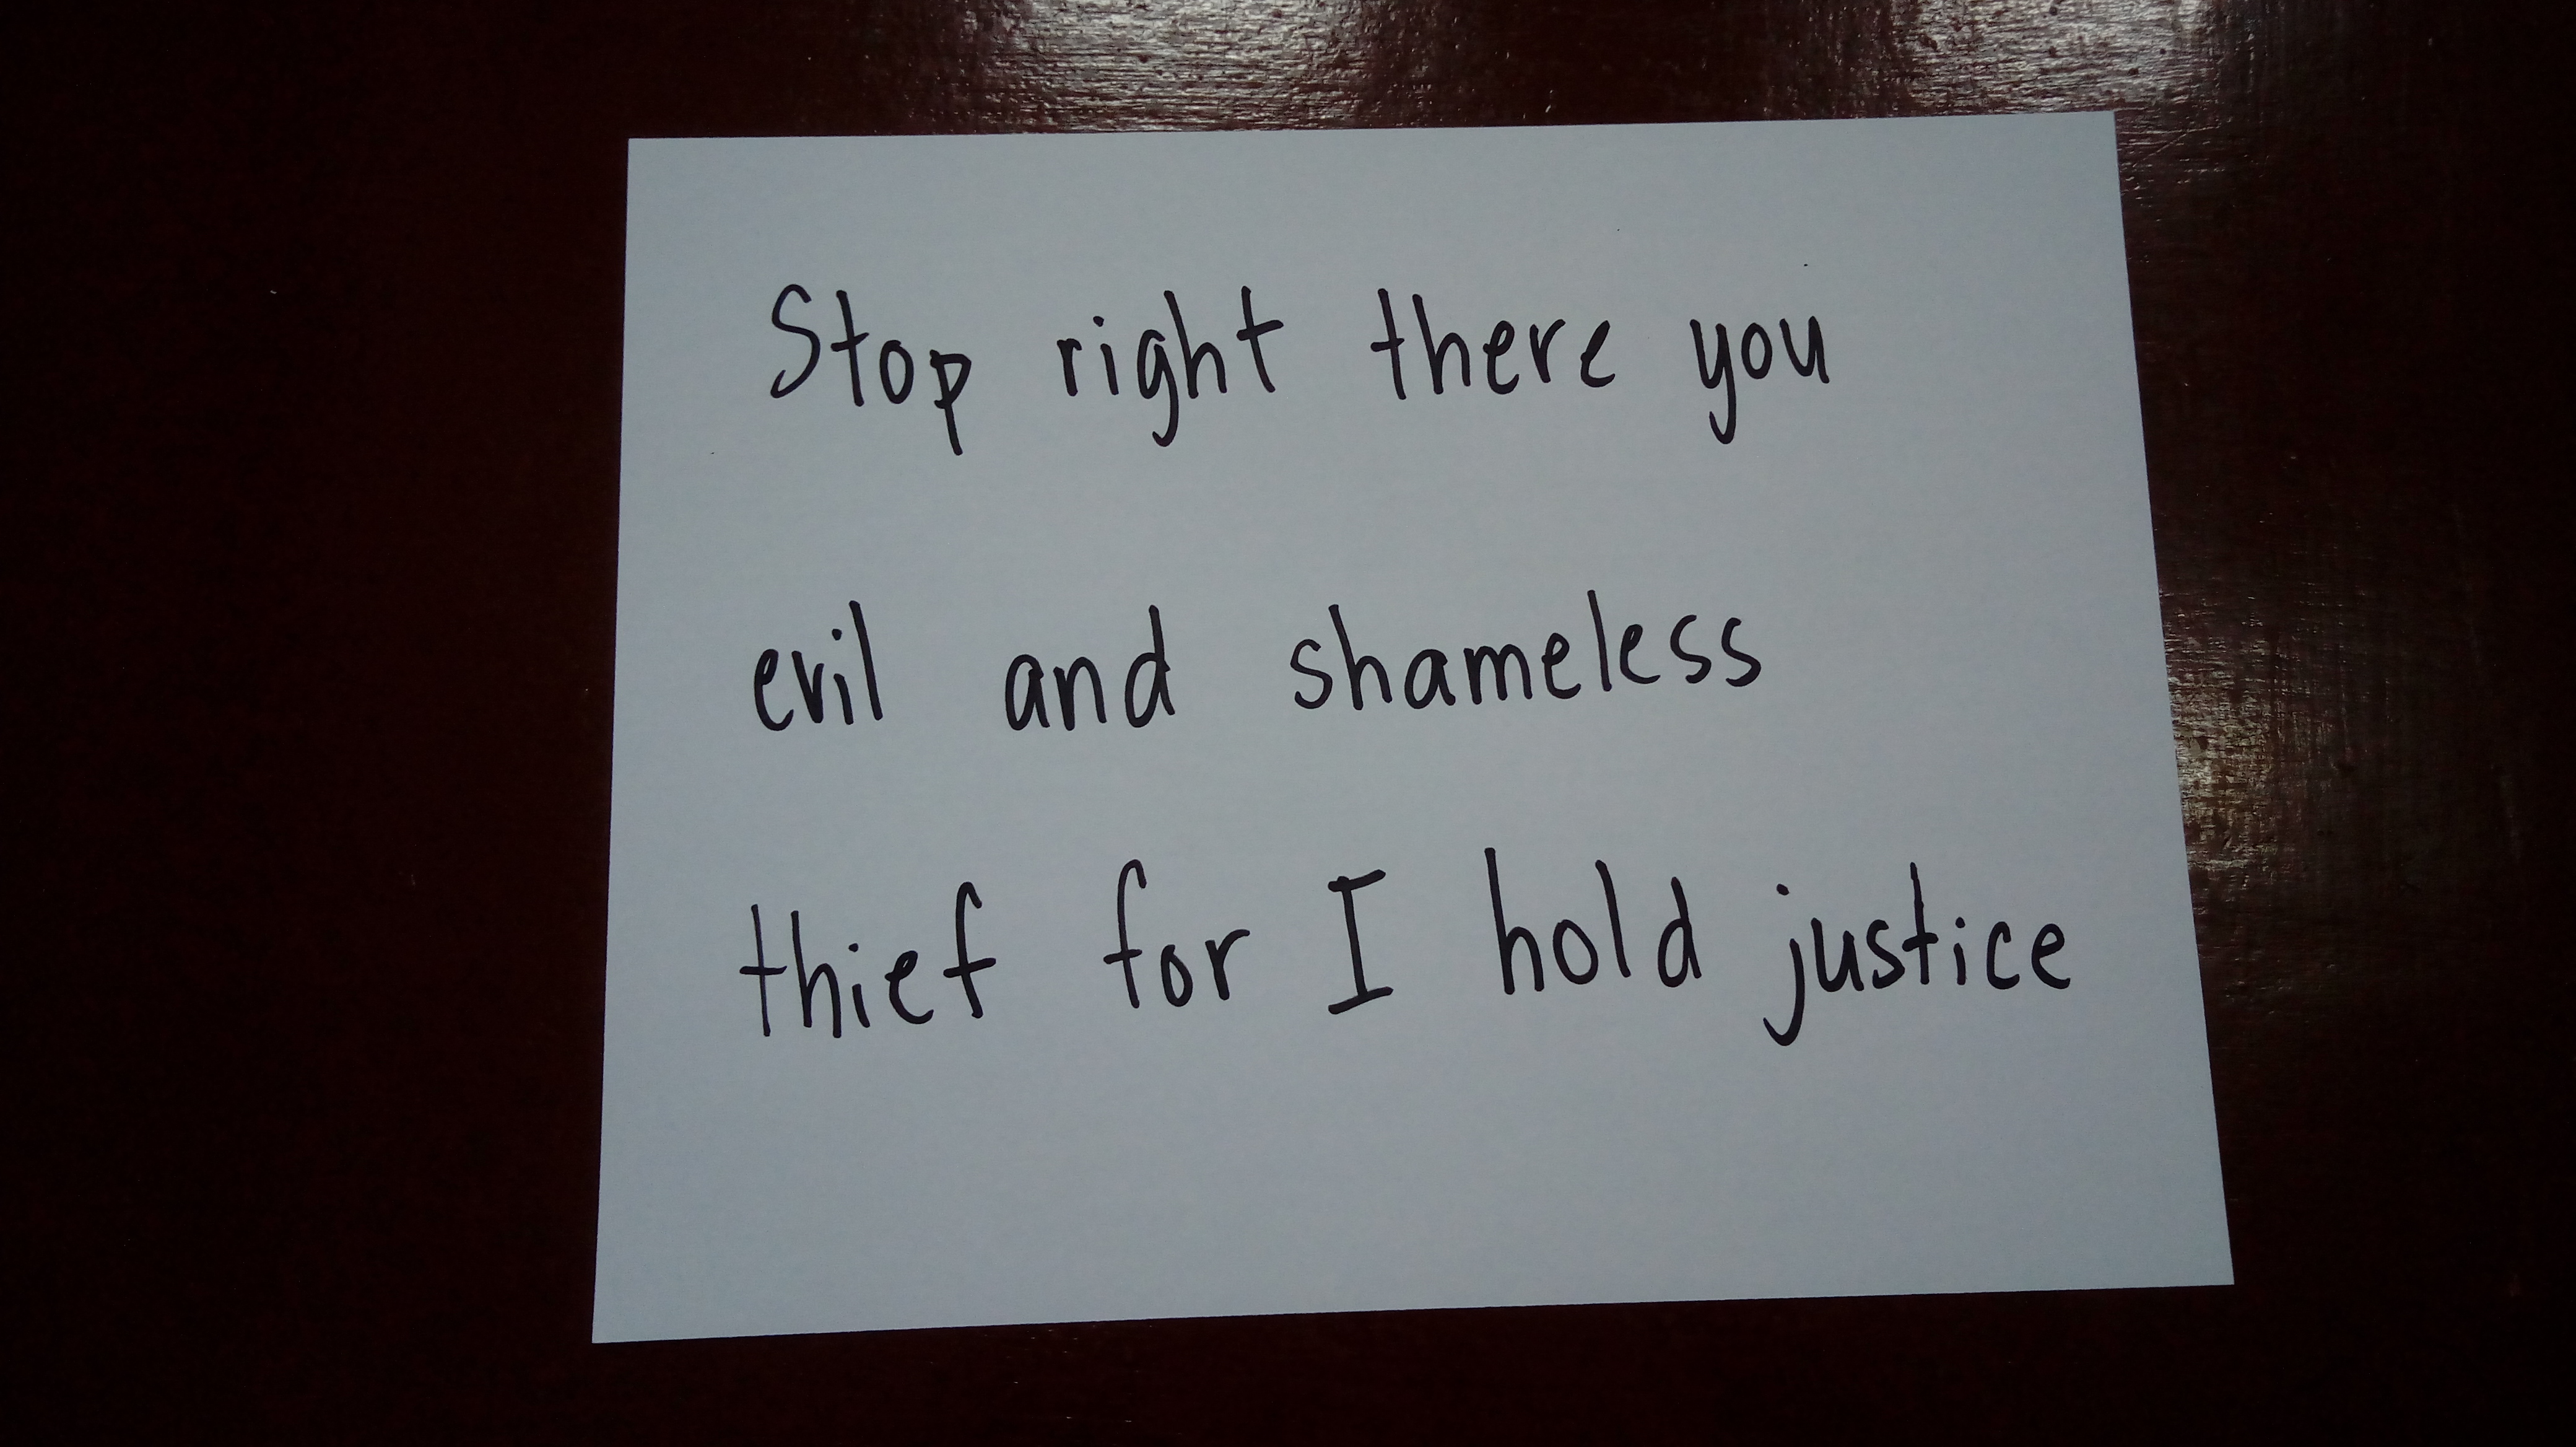 Stop right there you
evil and shameless
thief for I hold justice